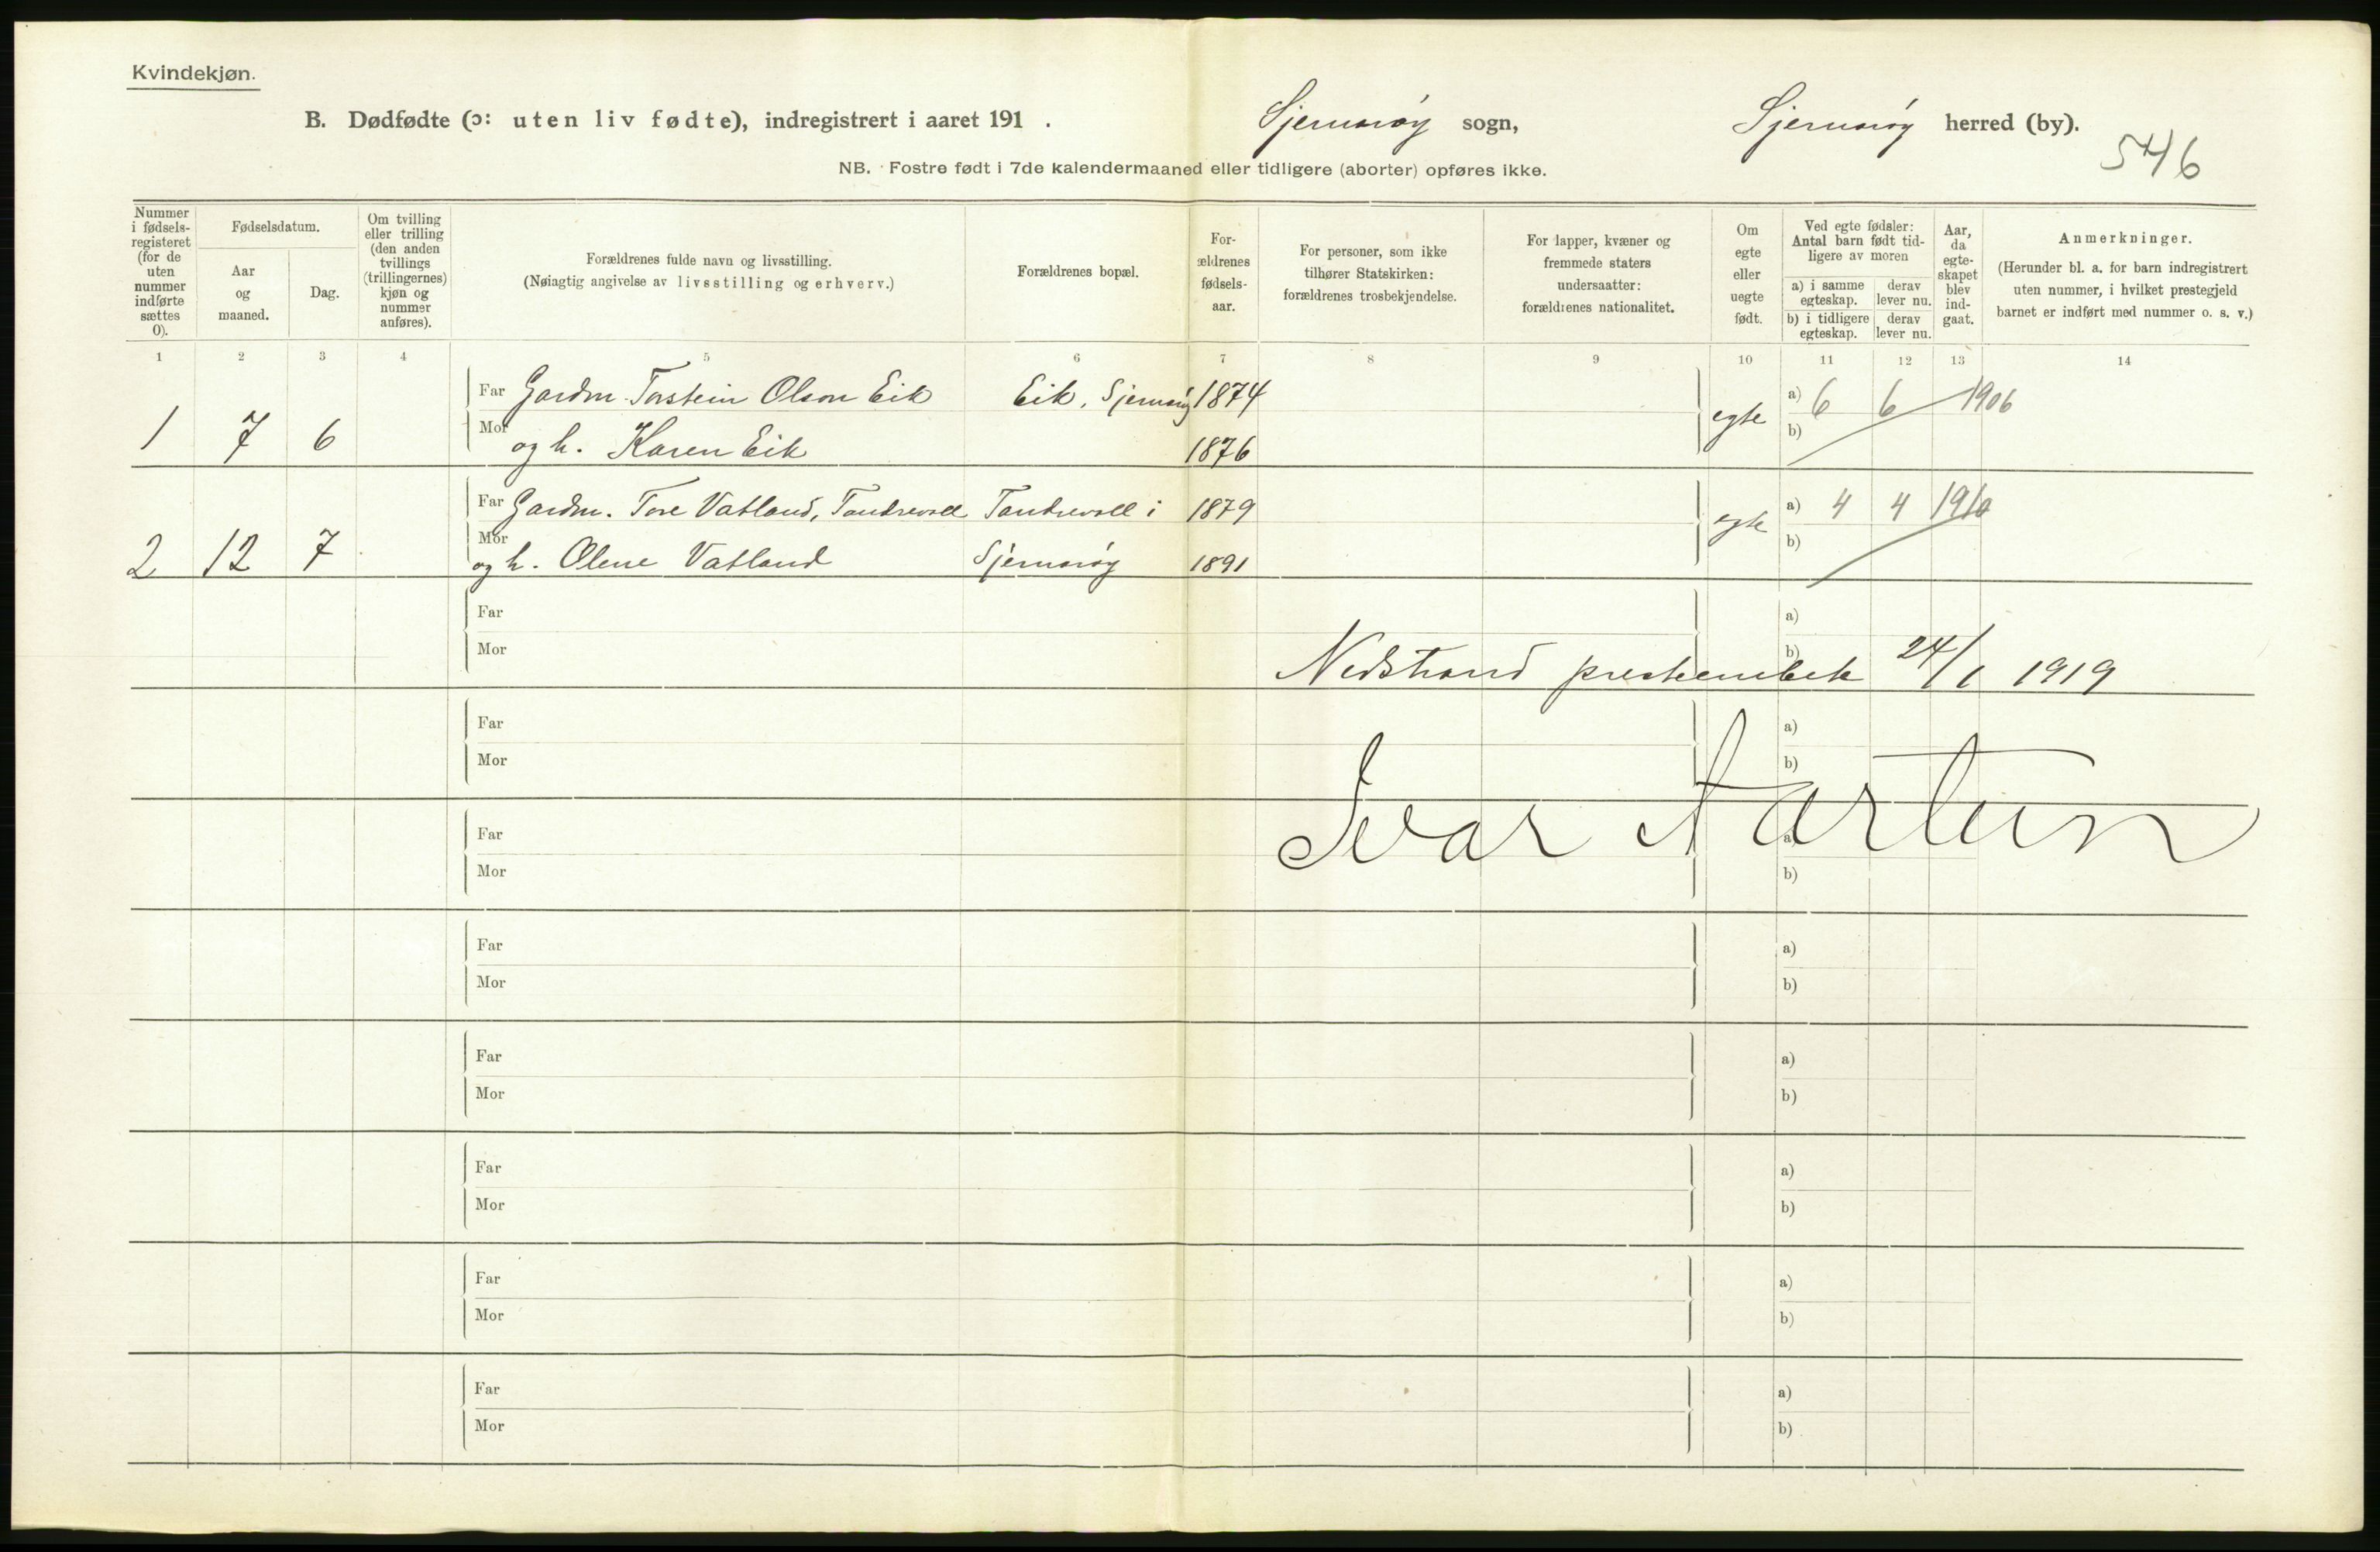 Kvindekjøn.
B. Dødfødte (ɔ: uten liv fødte), indregistrert i aaret 191 . Sjernarøy sogn, Sjernarøy herred (by).
546
NB. Fostre født i 7de kalendermaaned eller tidligere (aborter) opføres ikke.
Nummer i fødsels-registeret (for de uten nummer indførte sættes 0).
Fødselsdatum.
Aar og maaned.
Dag.
Om tvilling eller trilling (den anden tvillings (trillingernes) kjøn og nummer anføres).
Forældrenes fulde navn og livsstilling.
(Nøiagtig angivelse av livsstilling og erhverv.)
Forældrenes bopæl.
For-ældrenes fødsels-aar.
For personer, som ikke tilhører Statskirken: forældrenes trosbekjendelse.
For lapper, kvæner og fremmede staters undersaatter: forældrenes nationalitet.
Om egte eller uegte født.
Ved egte fødsler: Antal barn født tid-ligere av moren
a) i samme egteskap. derav lever nu.
b) i tidligere egteskap. derav lever nu.
Aar, da egte-skapet blev ind-gaat.
Anmerkninger.
(Herunder bl. a. for barn indregistrert uten nummer, i hvilket prestegjeld barnet er indført med nummer o. s. v.)
1 2 3 4 5 6 7 8 9 10 11 12 13 14
Far Gardm. Torstein Olson Eik Eik, Sjernarøy 1874 a) 6 6 1906
1 7 6 Mor og h. Karen Eik 1876 egte b)
Far Gardm. Tore Vatland, Tandrevold Tandrevold i 1879 egte a) 4 4 1910
2 12 7 Mor og h. Olene Vatland Sjernarøy 1891 b)
Far a)
Mor b)
Nedstrand prestembete 24/1 1919
Far a)
Mor b)
Ivar Aartun
Far a)
Mor b)
Far a)
Mor b)
Far a)
Mor b)
Far a)
Mor b)
Far a)
Mor b)
Far a)
Mor b)